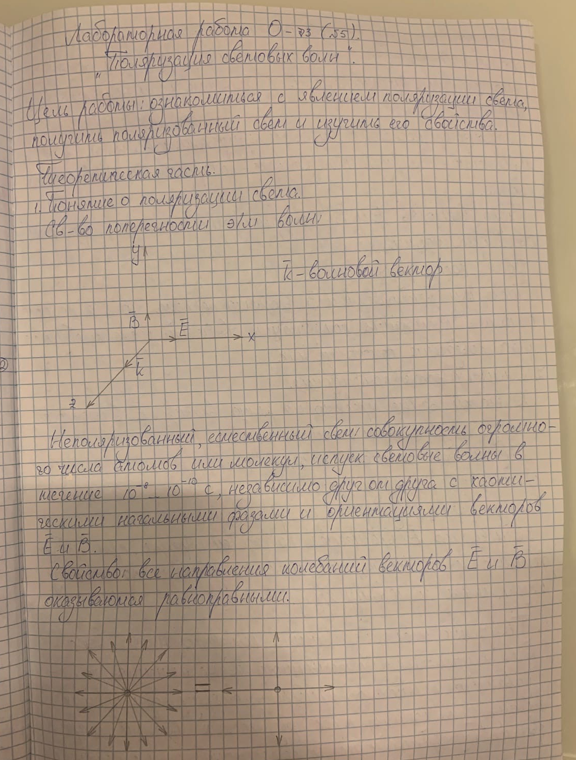 Лабораторная работа О-73 (55).
"Поляризация световых волн".
Цель работы: ознакомиться с явлением поляризации света,
получить поляризованный свет и изучить его свойства.
Теоретическая часть.
1. Понятие о поляризации света.
Св-во поперечности э/м волн:
y
k̄ - волновой вектор
B̄
Ē
x
k̄
z
Неполяризованный, естественный свет: совокупность огромно-
го числа атомов или молекул, испуск световые волны в
течение 10⁻⁸...10⁻¹⁰ с, независимо друг от друга с хаоти-
ческими начальными фазами и ориентациями векторов
Ē и B̄.
Свойство: все направления колебаний векторов Ē и B̄
оказываются равноправными.
=